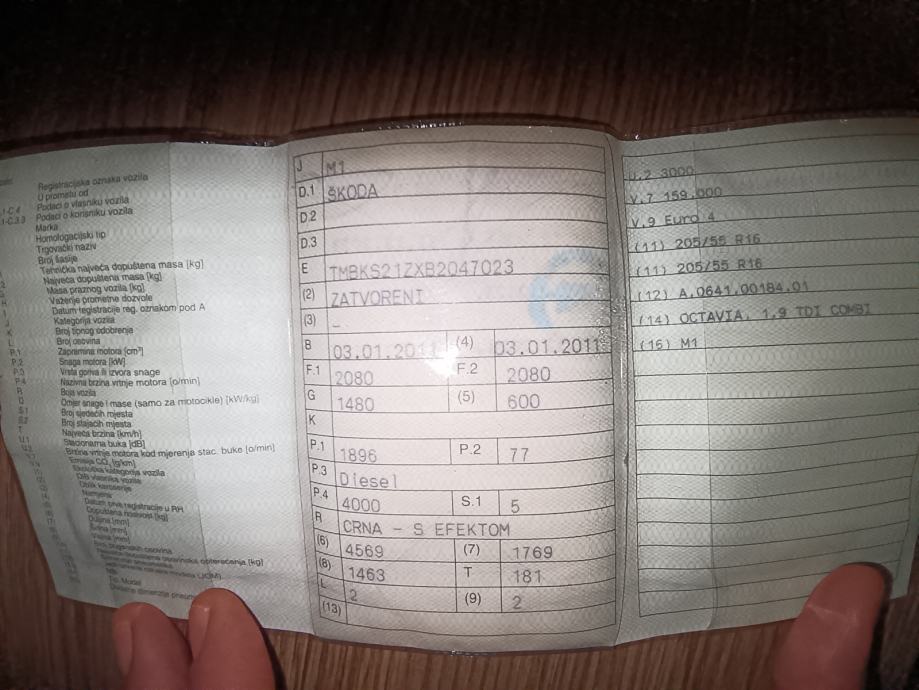 Registracijska oznaka vozila
U prometu od
Podaci o vlasniku vozila
Podaci o korisniku vozila
Marka
Homologacijski tip
Trgovački naziv
Broj šasije
Tehnička najveća dopuštena masa [kg]
Najveća dopuštena masa [kg]
Masa praznog vozila [kg]
Važenje prometne dozvole
Datum registracije reg. oznakom pod A
J Kategorija vozila
K Broj tipnog odobrenja
L Broj osovina
P.1 Zapremina motora [cm³]
P.2 Snaga motora [kW]
P.3 Vrsta goriva ili izvora snage
P.4 Nazivna brzina vrtnje motora [o/min]
R Boja vozila
Q Omjer snage i mase (samo za motocikle) [kW/kg]
S.1 Broj sjedećih mjesta
S.2 Broj stajaćih mjesta
T Najveća brzina [km/h]
U.1 Stacionarna buka [dB]
Brzina vrtnje motora kod mjerenja stac. buke [o/min]
Emisija CO₂ [g/km]
Ekološka kategorija vozila
OIB vlasnika vozila
Oblik karoserije
Namjena
Datum prve registracije u RH
Dopuštena nosivost [kg]
Duljina [mm]
Širina [mm]
Visina [mm]
J M1
D.1 ŠKODA
D.2
D.3
E TMBKS21ZXB2047023
(2) ZATVORENI
(3) –
B 03.01.2011 (4) 03.01.2011
F.1 2080 F.2 2080
G 1480 (5) 600
K
P.1 1896 P.2 77
P.3 Diesel
P.4 4000 S.1 5
R CRNA - S EFEKTOM
(6) 4569 (7) 1769
(8) 1463 T 181
L 2 (9) 2
(13)
U.2 3000
V.7 159.000
V.9 Euro 4
(11) 205/55 R16
(11) 205/55 R16
(12) A.0641.00184.01
(14) OCTAVIA, 1.9 TDI COMBI
(15) M1